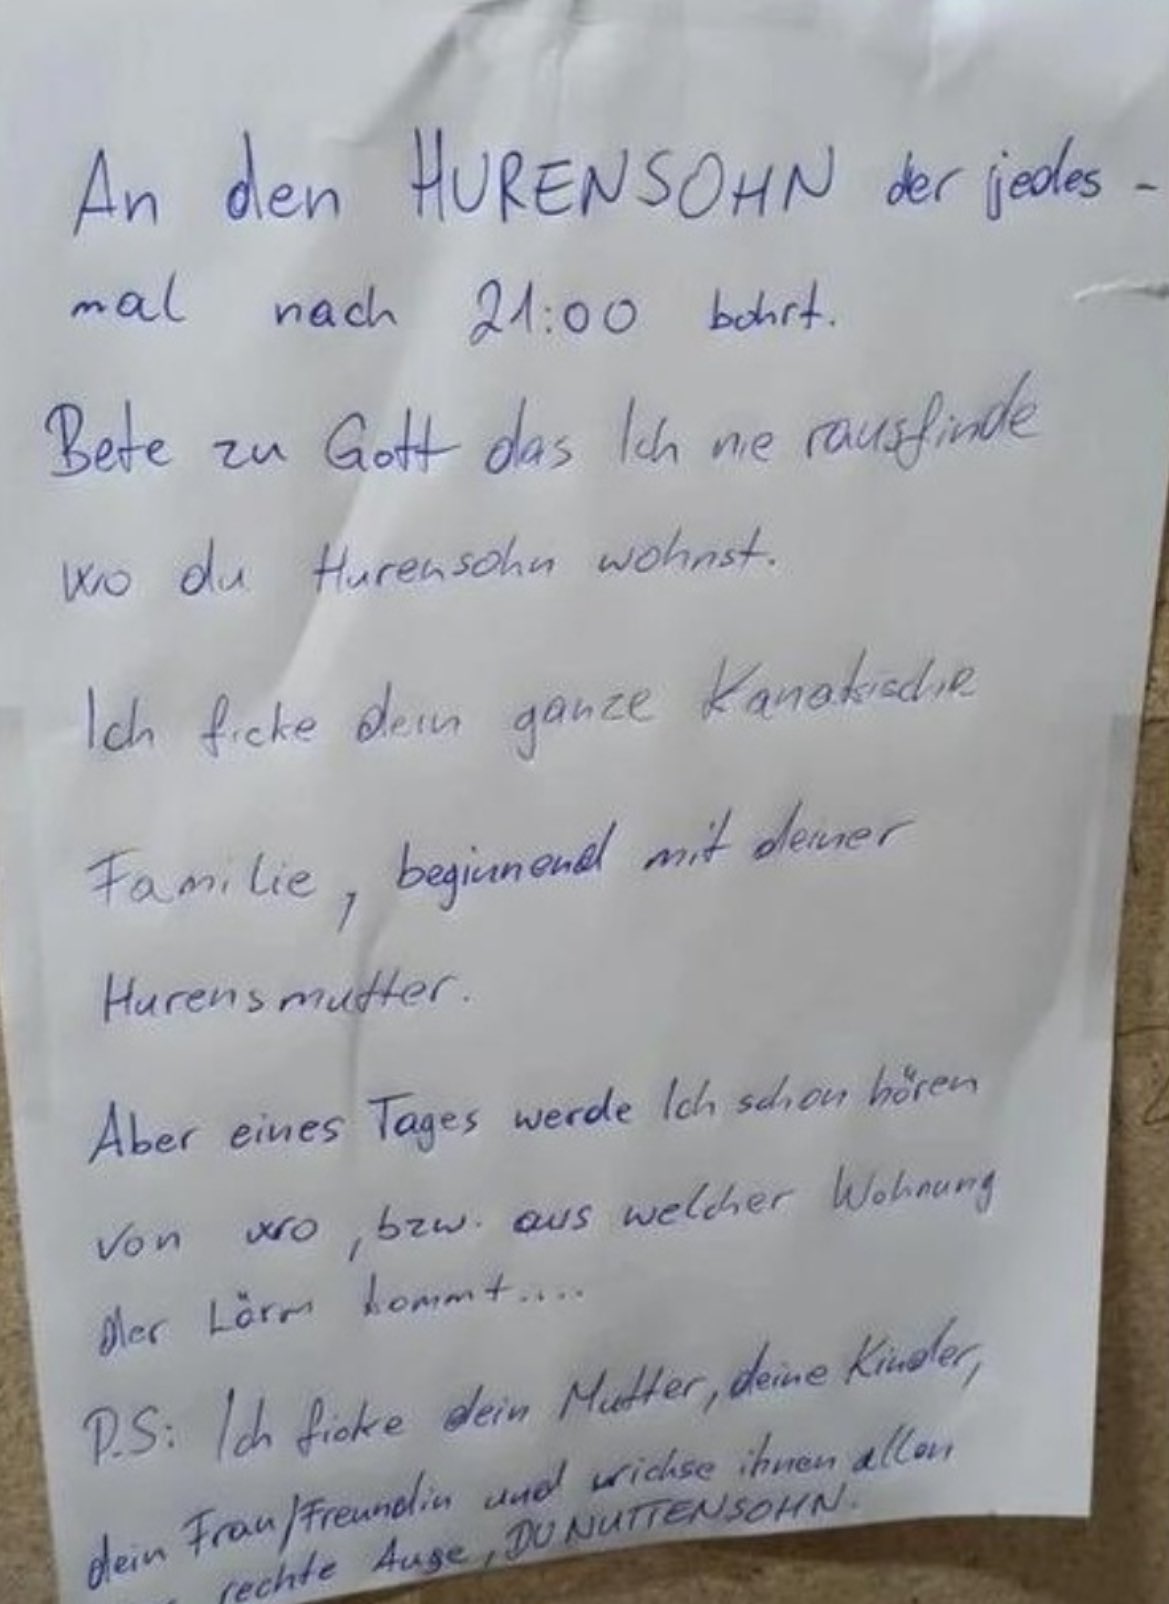 An den HURENSOHN der jedes-
mal nach 21:00 bohrt.
Bete zu Gott das Ich nie rausfinde
wo du Hurensohn wohnst.
Ich ficke dein ganze Kanakische
Familie, beginnend mit deiner
Hurensmutter.
Aber eines Tages werde Ich schon hören
von wo, bzw. aus welcher Wohnung
der Lärm kommt....
P.S: Ich ficke dein Mutter, deine Kinder,
dein Frau/Freundin und wichse ihnen allen
rechte Auge, DU NUTTENSOHN.